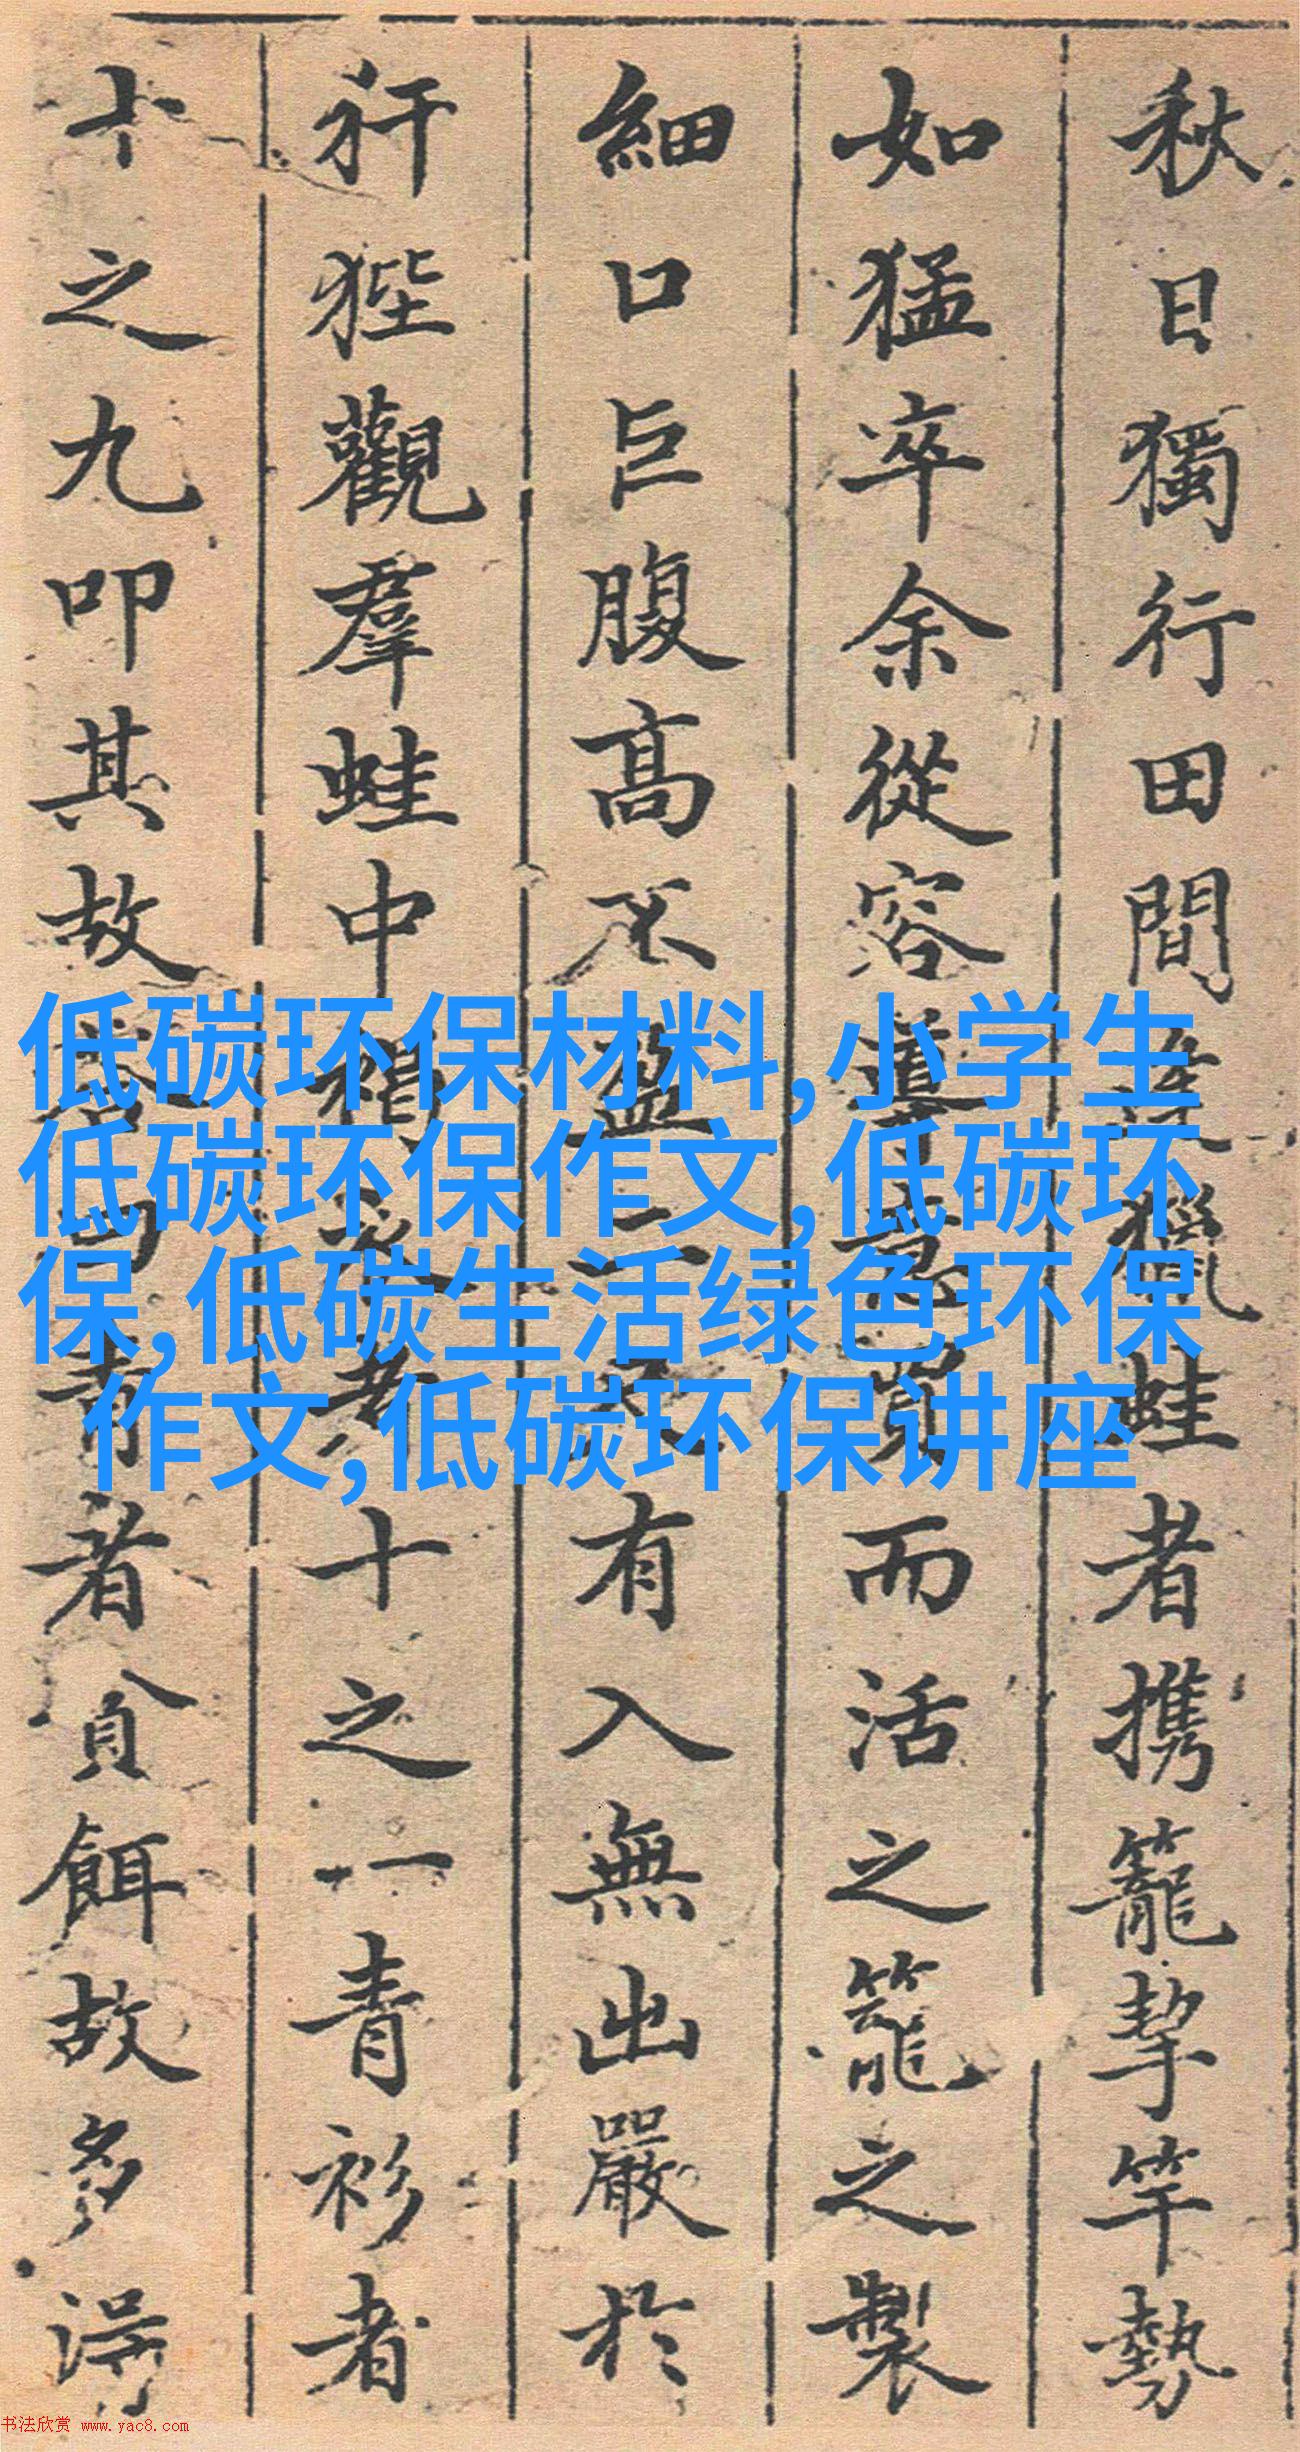 秋日獨行田間逢獵蛙者携籠挈竿勢
如猛卒余從容導意冀而活之籠之製
細口巨腹高不盈二尺有入無出嚴於
犴狴觀羣蛙中褐衣者十之一青衫者
十之九叩其故答曰青者貪餌故多得
低碳环保材料,小学生
低碳环保作文,低碳环
保,低碳生活绿色环保
作文,低碳环保讲座
书法欣赏 www.yac8.com